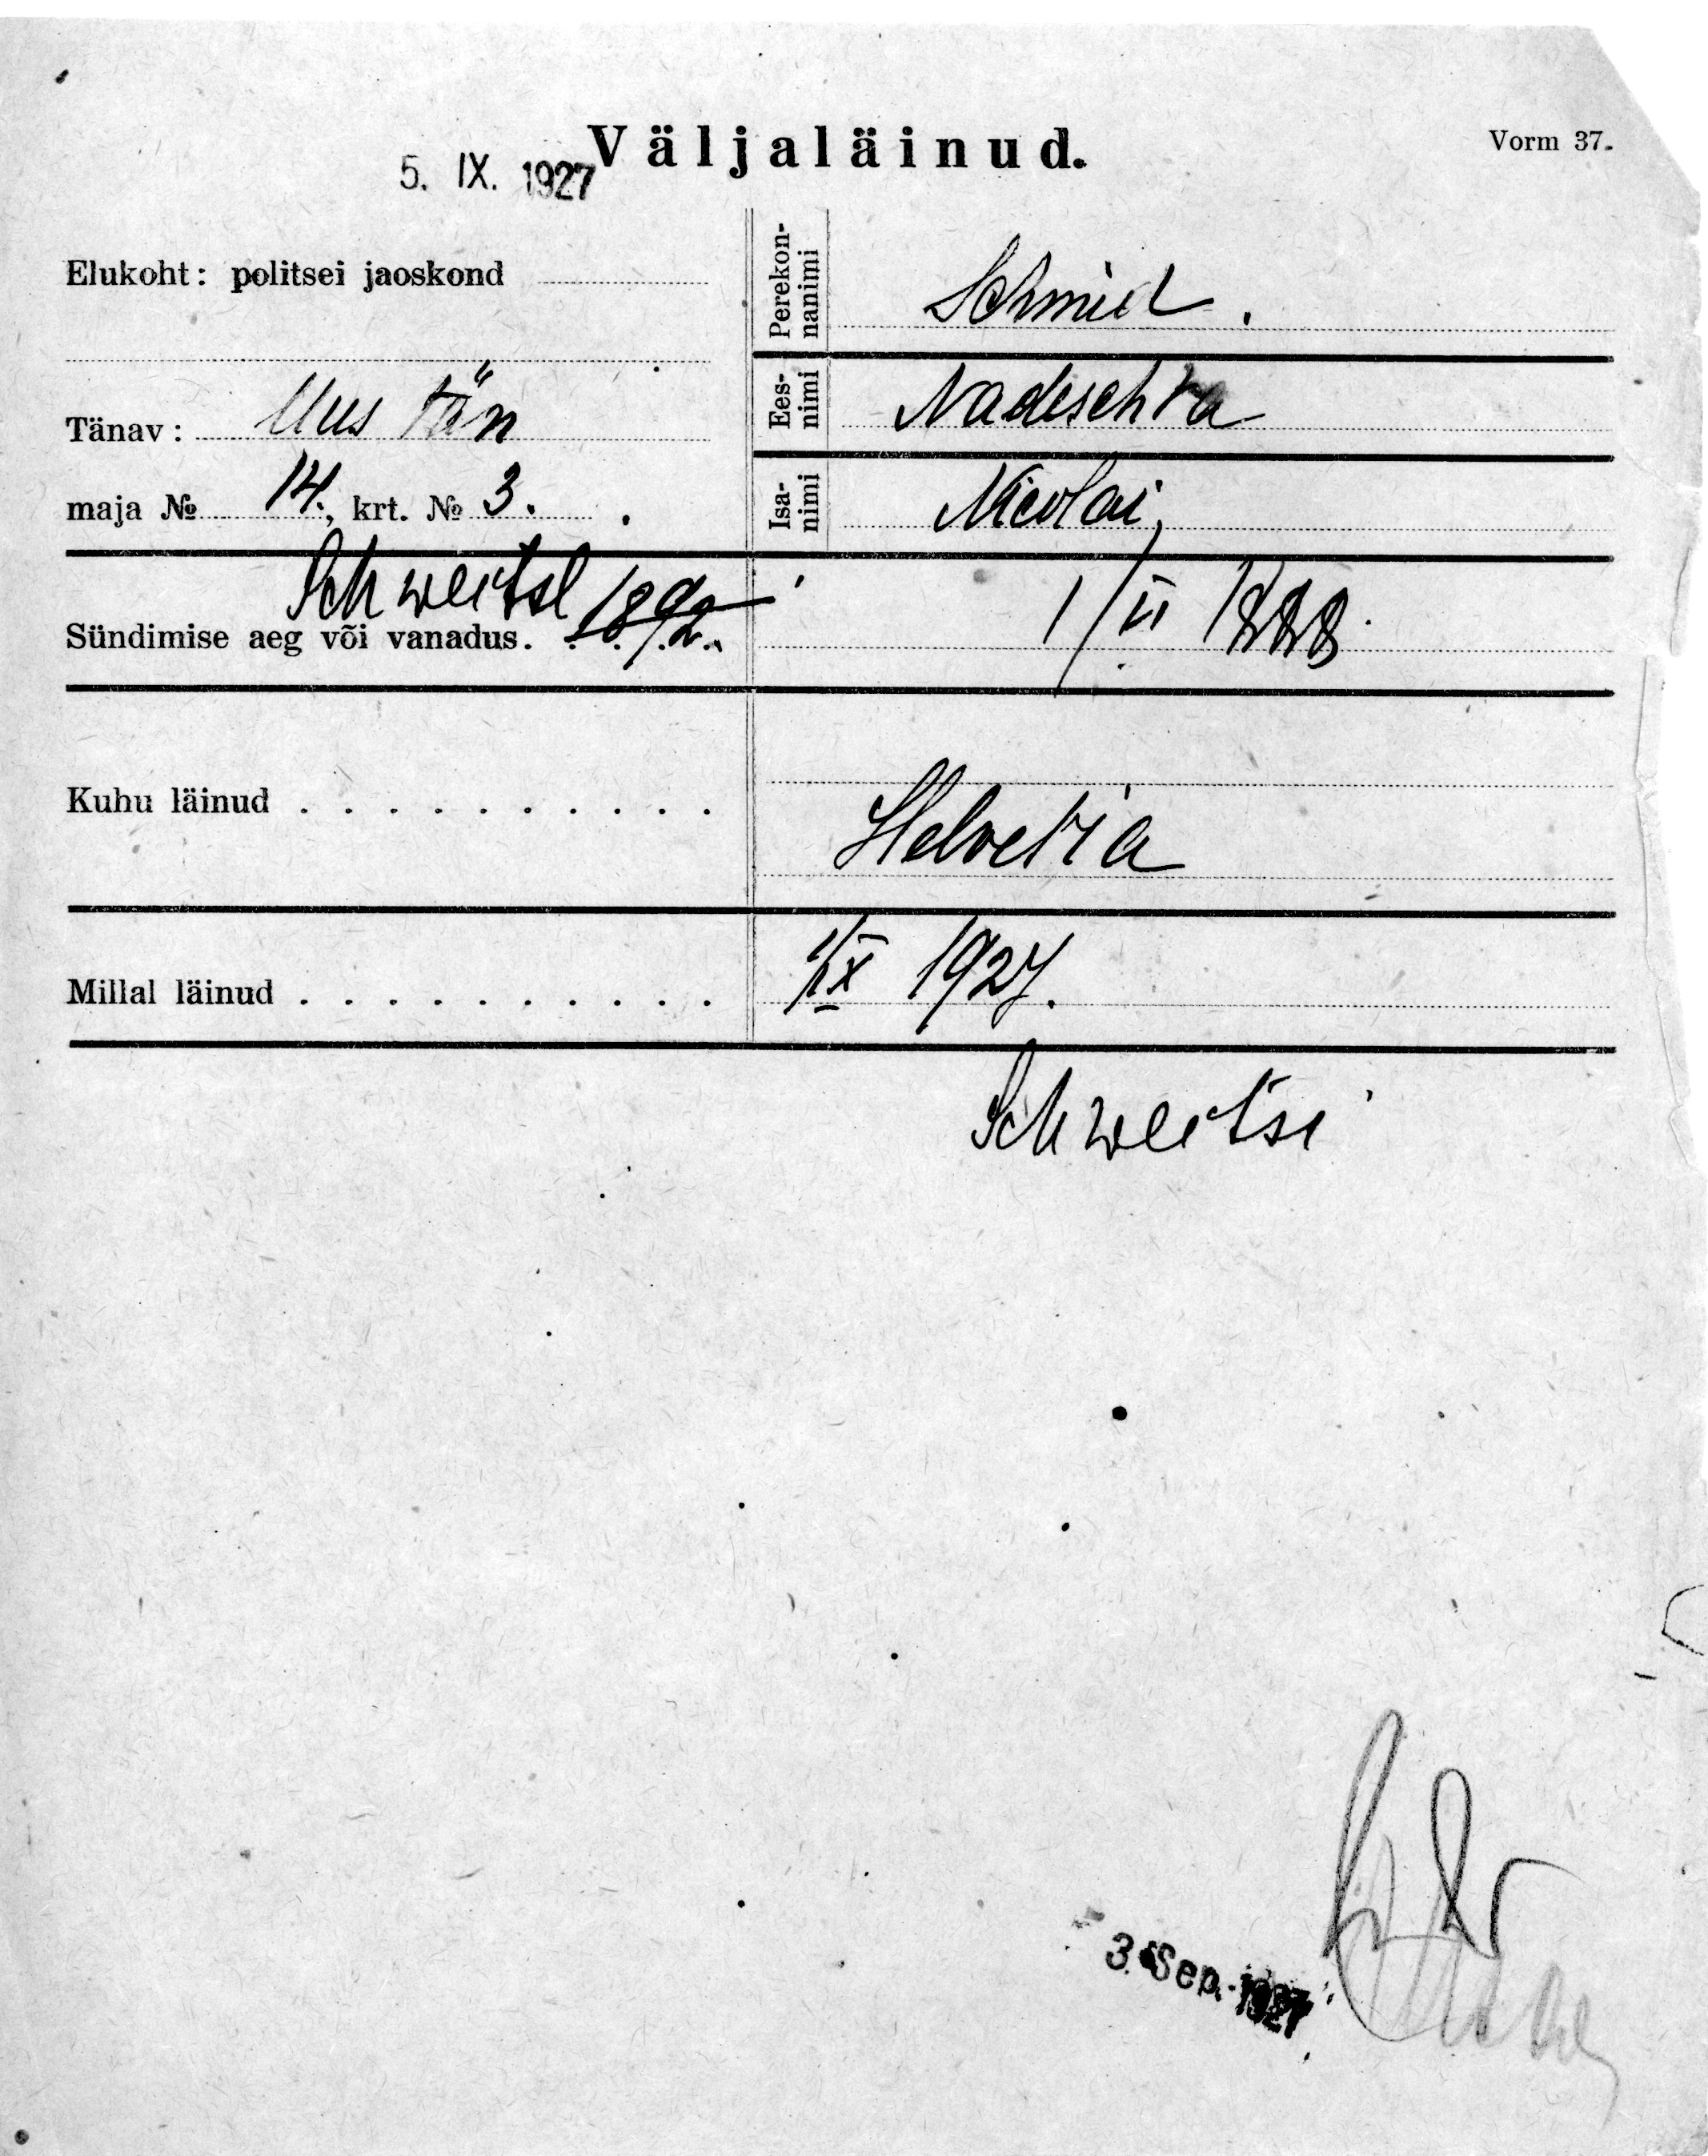 Väljaläinud.
Vorm 37.
5. IX. 1927
Elukoht: politsei jaoskond
Tänav: Uus tän
maja № 14., krt. № 3.
Perekon-
nanimi
Schmid.
Ees-
nimi
Nadeschta
Isa-
nimi
Nicolai,
Schweitsi 1892.
Sündimise aeg või vanadus.
1/II 1888.
Kuhu läinud . . . . . . . . . . .
Helvetia
Millal läinud . . . . . . . . . . .
1/IX 1927.
Schweitsi
3. Sep. 1927